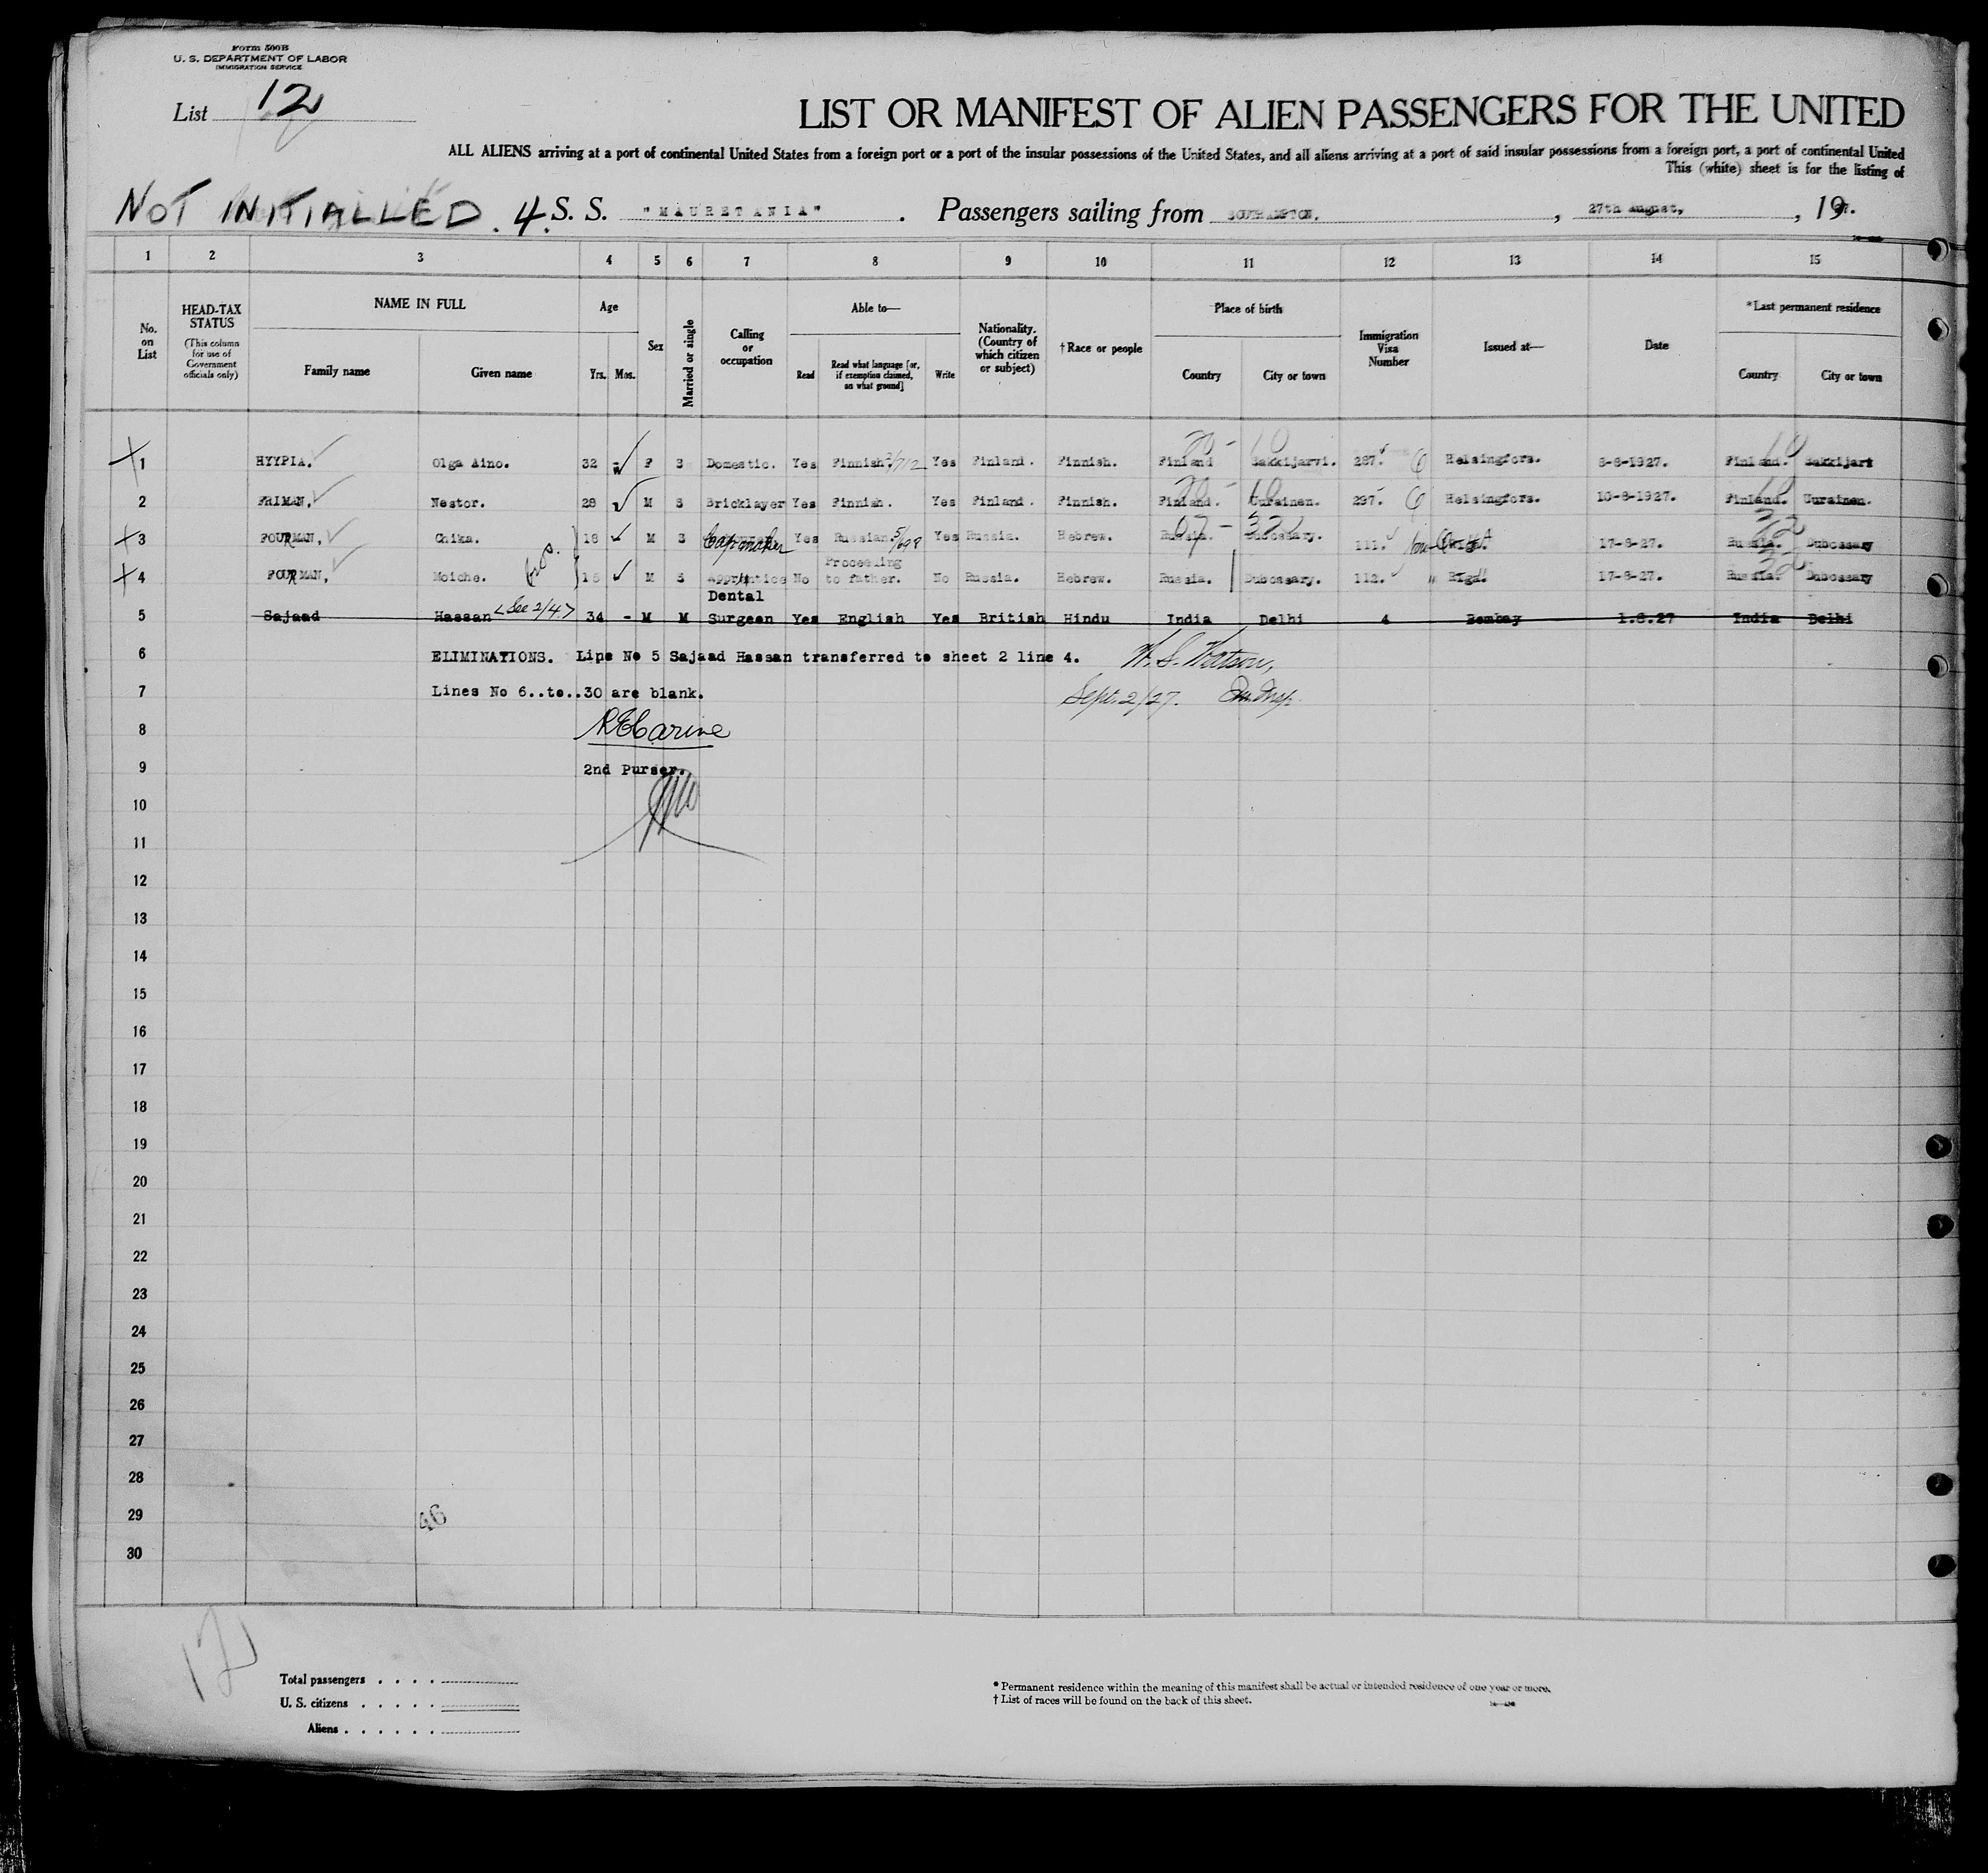 Form 500B
U. S. DEPARTMENT OF LABOR
IMMIGRATION SERVICE
List 12
LIST OR MANIFEST OF ALIEN PASSENGERS FOR THE UNITED
ALL ALIENS arriving at a port of continental United States from a foreign port or a port of the insular possessions of the United States, and all aliens arriving at a port of said insular possessions from a foreign port, a port of continental United
This (white) sheet is for the listing of
NOT INITIALLED. 4. S. S. "MAURETANIA" . Passengers sailing from SOUTHAMPTON. , 27th August, , 1927.
1 2 3 4 5 6 7 8 9 10 11 12 13 14 15
No. on List
HEAD-TAX STATUS
(This column for use of Government officials only)
NAME IN FULL
Family name Given name
Age
Yrs. Mos.
Sex
Married or single
Calling or occupation
Able to—
Read Read what language [or, if exemption claimed, on what ground] Write
Nationality. (Country of which citizen or subject)
† Race or people
Place of birth
Country City or town
Immigration Visa Number
Issued at—
Date
*Last permanent residence
Country City or town
1 HYYPIA. Olga Aino. 32 F S Domestic. Yes Finnish. Yes Finland. Finnish. Finland Sakkijarvi. 287. Helsingfors. 8-8-1927. Finland. Sakkijari
2 FRIMAN. Nestor. 28 M S Bricklayer Yes Finnish. Yes Finland. Finnish. Finland. Uurainen. 297. Helsingfors. 10-8-1927. Finland. Uurainen.
3 FOURMAN, Chika. 18 M S Cap maker Yes Russian. 5/698 Yes Russia. Hebrew. Russia. Dubossary. 111. Riga. 17-8-27. Russia. Dubossary
4 FOURMAN, Moiche. 15 M S Apprentice No Proceeding to father. No Russia. Hebrew. Russia. Dubossary. 112. Riga. 17-8-27. Russia. Dubossary
5 Sajaad Hassan <See 2/4> 34 - M M Dental Surgeon Yes English Yes British Hindu India Delhi 4 Bombay 1.8.27 India Delhi
6 ELIMINATIONS. Line No 5 Sajaad Hassan transferred to sheet 2 line 4. W. S. Watson,
7 Lines No 6..to..30 are blank. Sept. 2/27.
8
9 2nd Purser.
10
11
12
13
14
15
16
17
18
19
20
21
22
23
24
25
26
27
28
29 46
30
12
Total passengers . . . .
U. S. citizens . . . . .
Aliens . . . . . .
* Permanent residence within the meaning of this manifest shall be actual or intended residence of one year or more.
† List of races will be found on the back of this sheet.